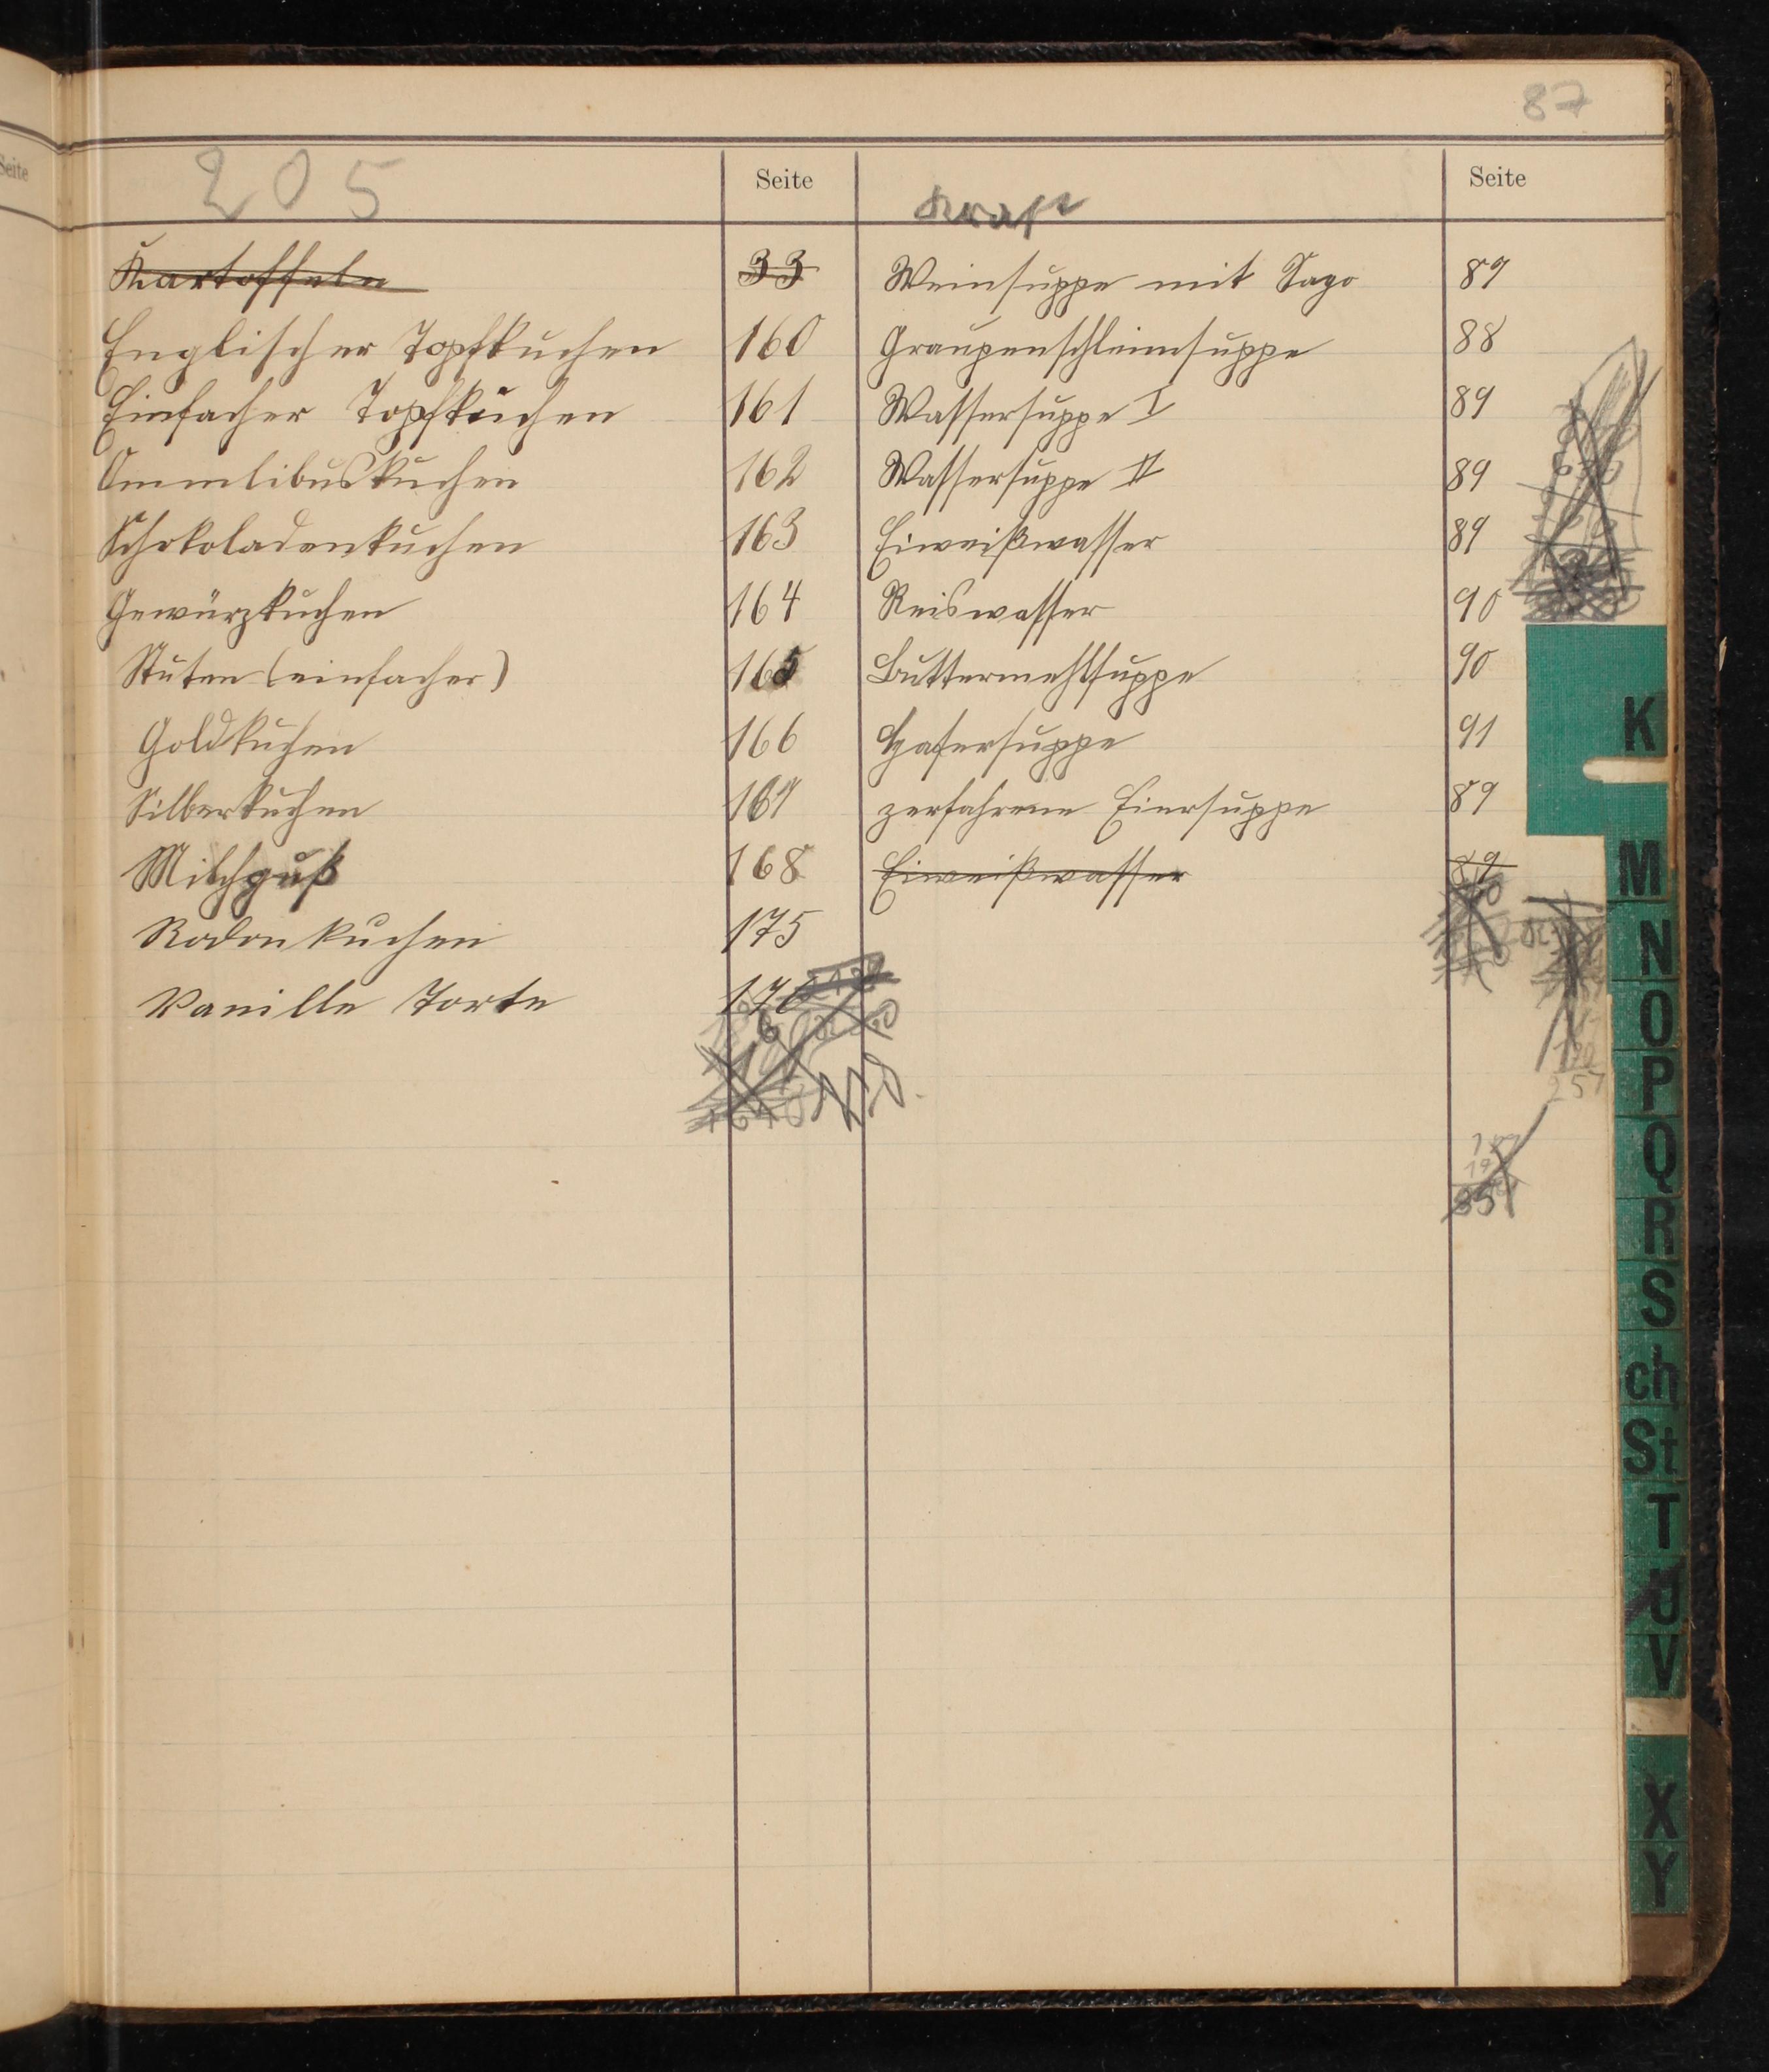 87
205
Seite
Seite
Kartoffeln 33
Englischer Topfkuchen 160
Einfacher Topfkuchen 161
Ommlibuskuchen 162
Schokoladenkuchen 163
Gewürzkuchen 164
Stuten (einfacher) 165
Goldkuchen 166
Silberkuchen 167
Milchguß 168
Rodonkuchen 175
Vanille Torte 176
Weinsuppe mit Sago 89
Graupenschleimsuppe 88
Wassersuppe I 89
Wassersuppe II 89
Eiweißwasser 89
Reiswasser 90
Buttermehlsuppe 90
Hafersuppe 91
zerfahrene Eiersuppe 89
Eiweißwasser 89
257
351
K
M
N
O
P
Q
R
S
ch
St
T
U
V
X
Y
Seite